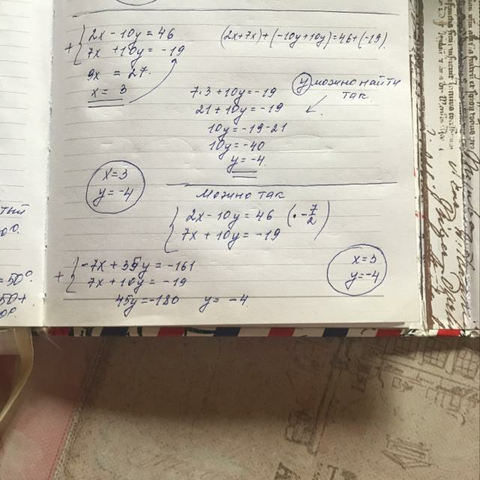 { 2x - 10y = 46
+ { 7x + 10y = -19
(2x+7x)+(-10y+10y)=46+(-19)
9x = 27
x = 3
7·3 + 10y = -19
21 + 10y = -19
10y = -19-21
10y = -40
y = -4
y можно найти
так
x=3
y=-4
Можно так
{ 2x - 10y = 46 (·-7/2)
{ 7x + 10y = -19
+ { -7x + 35y = -161
{ 7x + 10y = -19
45y = -180 y = -4
x=3
y=-4
тый
0°.
=50°
50+